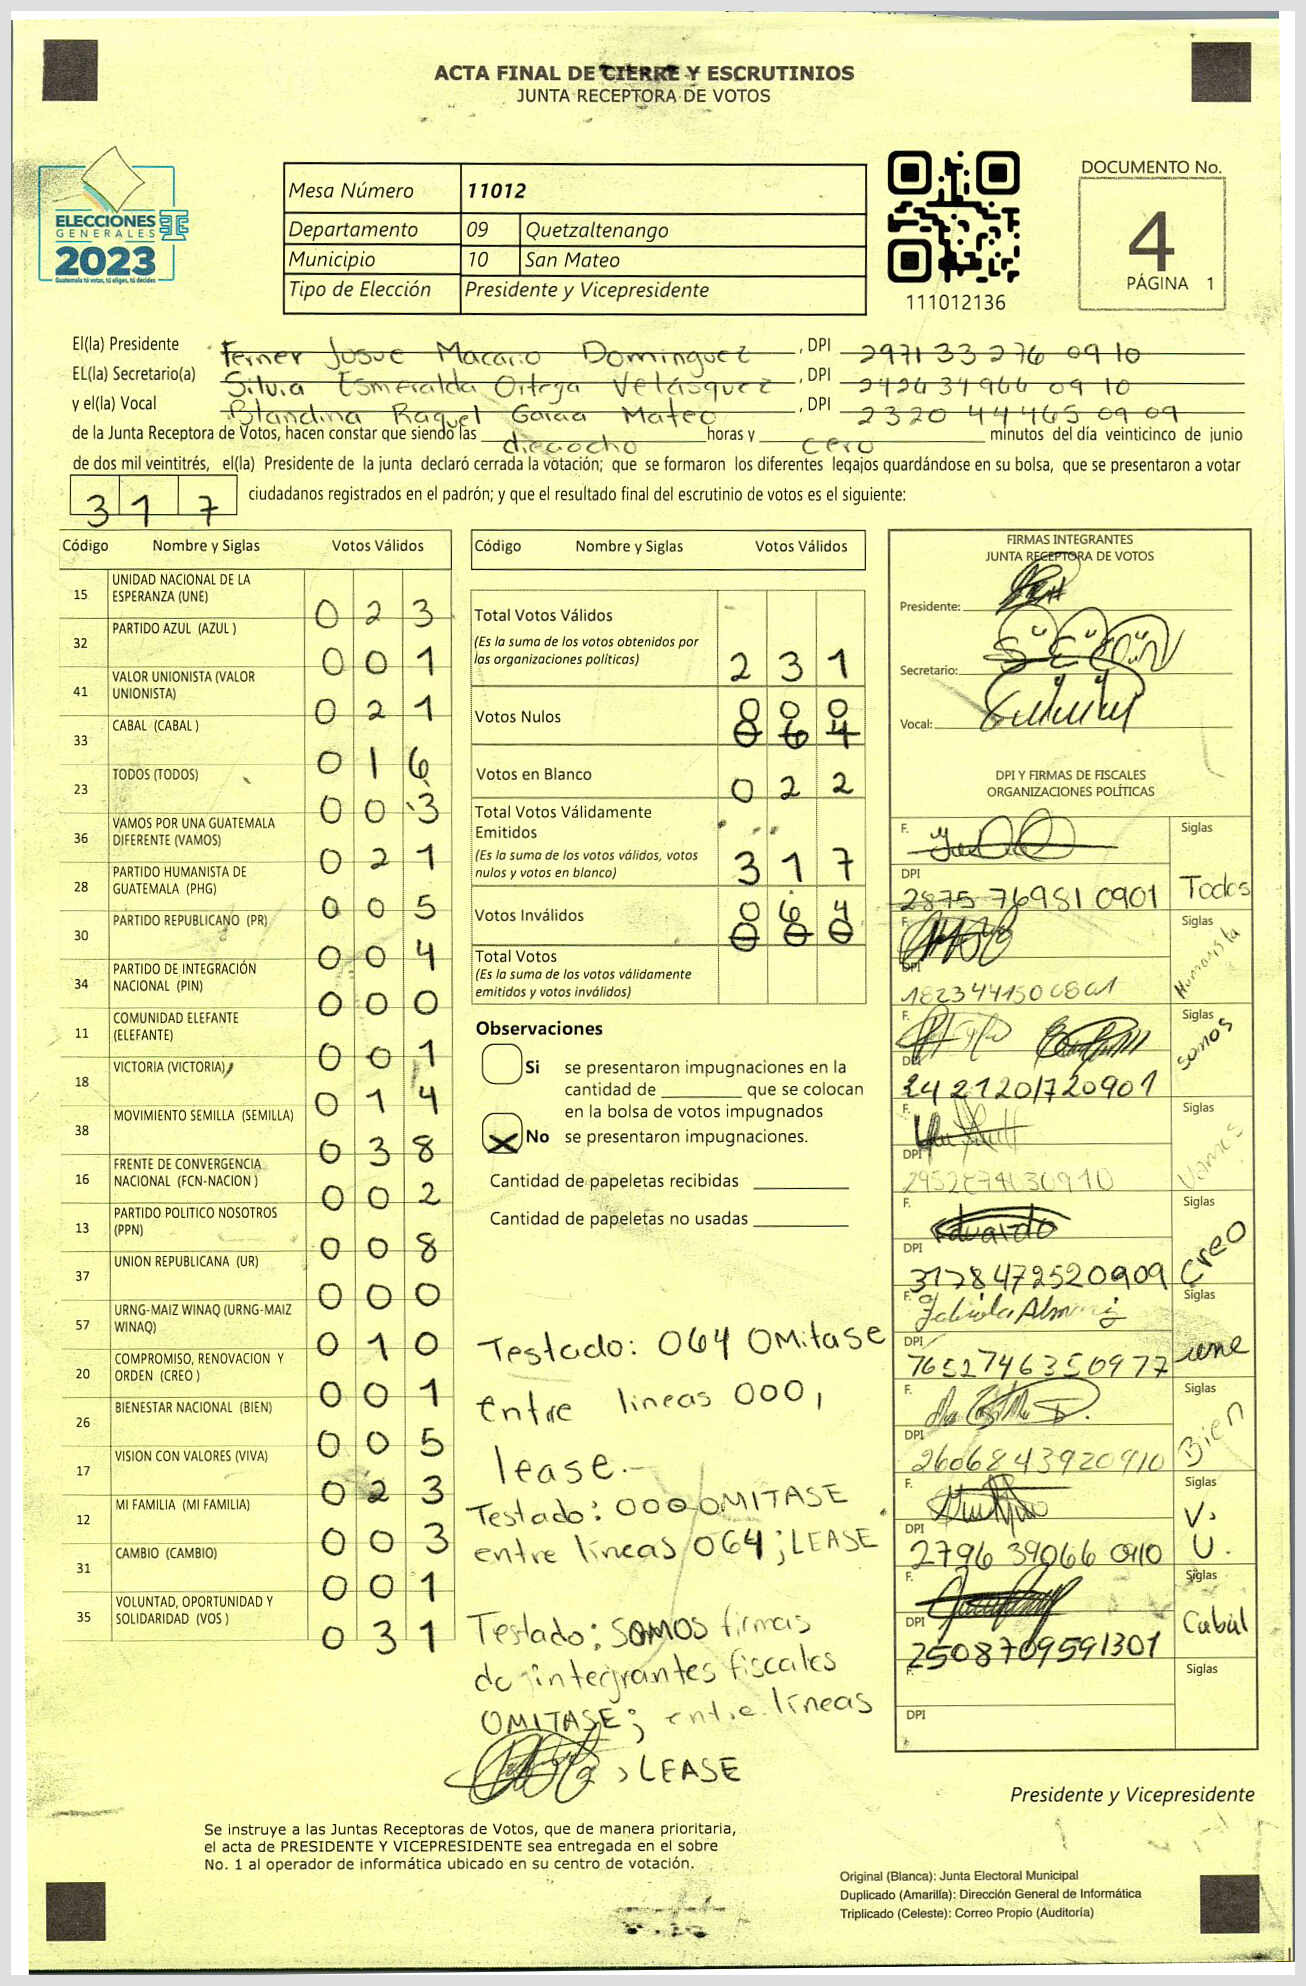 ACTA FINAL DE CIERRE Y ESCRUTINIOS
JUNTA RECEPTORA DE VOTOS
ELECCIONES
GENERALES
2023
Guatemala tú votas, tú eliges, tú decides
Mesa Número 11012
Departamento 09 Quetzaltenango
Municipio 10 San Mateo
Tipo de Elección Presidente y Vicepresidente
111012136
DOCUMENTO No.
4
PÁGINA 1
El(la) Presidente Ferner Josue Macario Dominguez , DPI 2971 33 276 0910
EL(la) Secretario(a) Silvia Esmeralda Ortega Velásquez , DPI 2426 34966 09 10
y el(la) Vocal Blandina Raquel Garcia Mateo , DPI 2320 44465 09 09
de la Junta Receptora de Votos, hacen constar que siendo las dieciocho horas y cero minutos del día veinticinco de junio
de dos mil veintitrés, el(la) Presidente de la junta declaró cerrada la votación; que se formaron los diferentes legajos guardándose en su bolsa, que se presentaron a votar
317 ciudadanos registrados en el padrón; y que el resultado final del escrutinio de votos es el siguiente:
Código Nombre y Siglas Votos Válidos
15 UNIDAD NACIONAL DE LA ESPERANZA (UNE) 0 2 3
32 PARTIDO AZUL (AZUL ) 0 0 1
41 VALOR UNIONISTA (VALOR UNIONISTA) 0 2 1
33 CABAL (CABAL ) 0 1 6
23 TODOS (TODOS) 0 0 3
36 VAMOS POR UNA GUATEMALA DIFERENTE (VAMOS) 0 2 1
28 PARTIDO HUMANISTA DE GUATEMALA (PHG) 0 0 5
30 PARTIDO REPUBLICANO (PR) 0 0 4
34 PARTIDO DE INTEGRACIÓN NACIONAL (PIN) 0 0 0
11 COMUNIDAD ELEFANTE (ELEFANTE) 0 0 1
18 VICTORIA (VICTORIA) 0 1 4
38 MOVIMIENTO SEMILLA (SEMILLA) 0 3 8
16 FRENTE DE CONVERGENCIA NACIONAL (FCN-NACION ) 0 0 2
13 PARTIDO POLITICO NOSOTROS (PPN) 0 0 8
37 UNION REPUBLICANA (UR) 0 0 0
57 URNG-MAIZ WINAQ (URNG-MAIZ WINAQ) 0 1 0
20 COMPROMISO, RENOVACION Y ORDEN (CREO ) 0 0 1
26 BIENESTAR NACIONAL (BIEN) 0 0 5
17 VISION CON VALORES (VIVA) 0 2 3
12 MI FAMILIA (MI FAMILIA) 0 0 3
31 CAMBIO (CAMBIO) 0 0 1
35 VOLUNTAD, OPORTUNIDAD Y SOLIDARIDAD (VOS ) 0 3 1
Código Nombre y Siglas Votos Válidos
Total Votos Válidos
(Es la suma de los votos obtenidos por
las organizaciones políticas) 2 3 1
Votos Nulos 0 0 0
0 6 4
Votos en Blanco 0 2 2
Total Votos Válidamente
Emitidos
(Es la suma de los votos válidos, votos
nulos y votos en blanco) 3 1 7
Votos Inválidos 0 6 4
0 0 0
Total Votos
(Es la suma de los votos válidamente
emitidos y votos inválidos)
Observaciones
Si se presentaron impugnaciones en la
cantidad de que se colocan
en la bolsa de votos impugnados
X No se presentaron impugnaciones.
Cantidad de papeletas recibidas
Cantidad de papeletas no usadas
Testado: 064 OMitase
entre lineas 000,
lease.-
Testado: 000 OMITASE
entre líneas 064; LEASE
Testado: SOMOS firmas
de integrantes fiscales
OMITASE; entre líneas
, LEASE
FIRMAS INTEGRANTES
JUNTA RECEPTORA DE VOTOS
Presidente:
Secretario:
Vocal:
DPI Y FIRMAS DE FISCALES
ORGANIZACIONES POLÍTICAS
F. Siglas
DPI
2875 76981 0901 Todos
F. Siglas
DPI
1823441500801 Humanista
F. Siglas
DPI
2421201720901 Somos
F. Siglas
DPI
Vamos
F. Eduardo Siglas
DPI
3178472520909 Creo
F. Siglas
DPI
7652746350977 une
F. Siglas
DPI
2606843920910 Bien
F. Siglas
DPI
2796 39066 0910 V. U.
F. Siglas
DPI
2508709591301 Cabal
F. Siglas
DPI
Presidente y Vicepresidente
Se instruye a las Juntas Receptoras de Votos, que de manera prioritaria,
el acta de PRESIDENTE Y VICEPRESIDENTE sea entregada en el sobre
No. 1 al operador de informática ubicado en su centro de votación.
Original (Blanca): Junta Electoral Municipal
Duplicado (Amarilla): Dirección General de Informática
Triplicado (Celeste): Correo Propio (Auditoría)